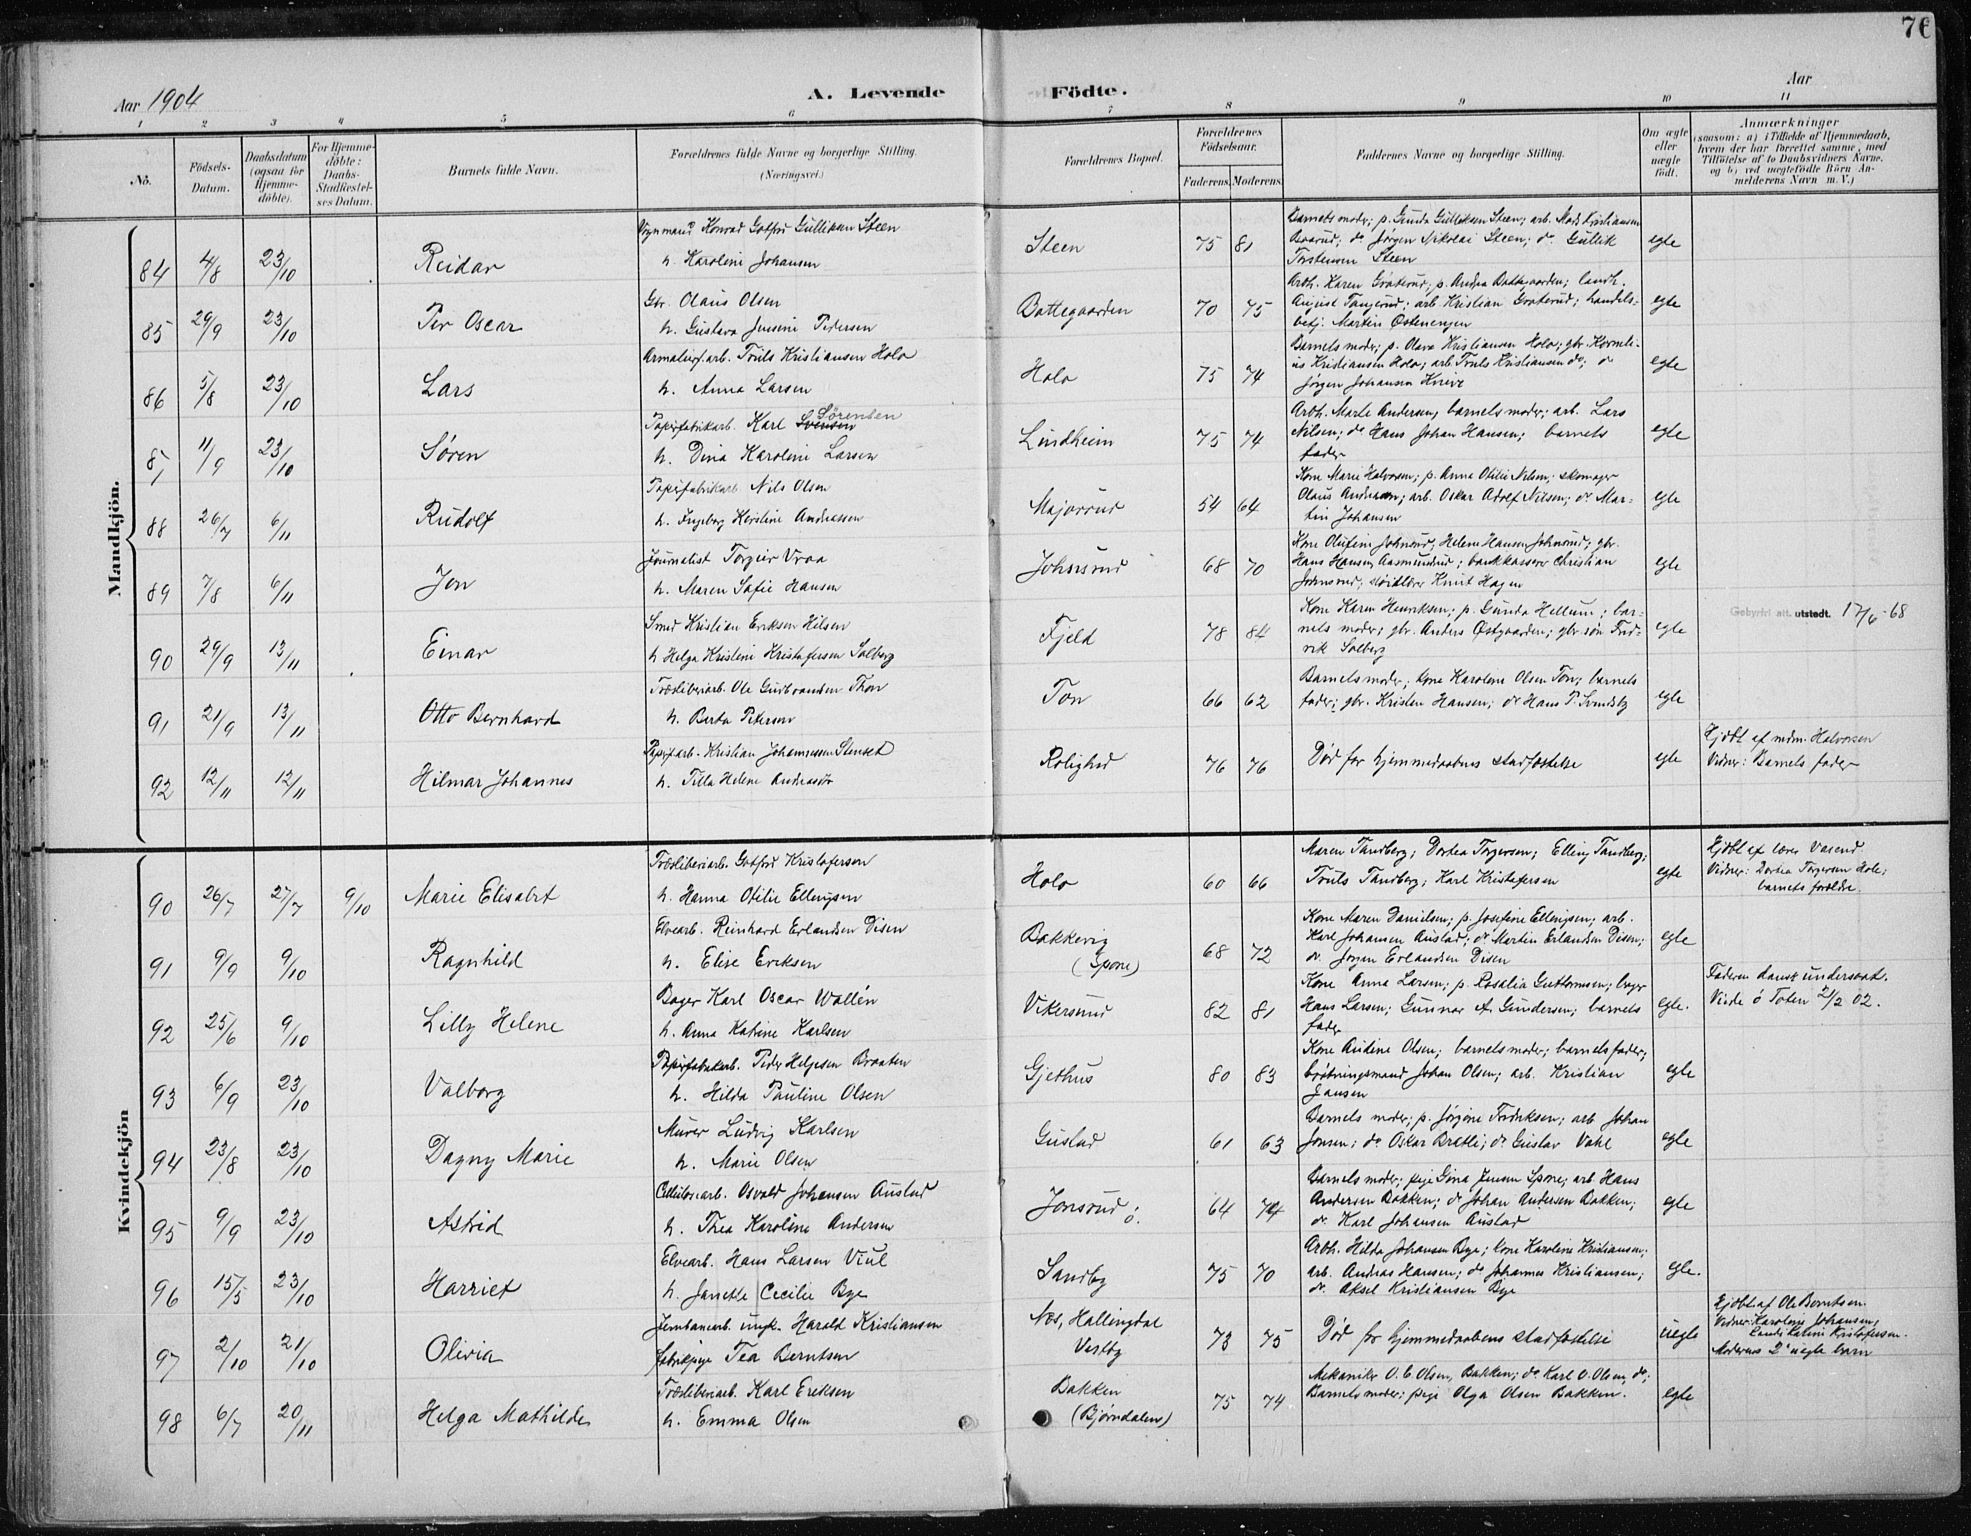 76
Aar 1904
A. Levende
Födte.
Aar
1 2 3 4 5 6 7 8 9 10 11
No.
Födsels-
Datum.
Daabsdatum
(ogsaa for
Hjemme-
döbte).
For Hjemme-
döbte:
Daabs-
Stadfæstel-
ses Datum.
Barnets fulde Navn.
Forældrenes fulde Navne og borgerlige Stilling.
(Næringsvei.)
Forældrenes Bopæl.
Forældrenes
Födselsaar.
Faderens. Moderens.
Faddernes Navne og borgerlige Stilling.
Om ægte
eller
uægte
födt.
Anmærkninger
(saasom: a) i Tilfælde af Hjemmedaab,
hvem der har forrettet samme, med
Tilföielse af to Daabsvidners Navne.
og b) ved uægtefödte Börn An-
melderens Navn m. V.)
Mandkjön.
84 4/8 23/10 Reidar
Konrad Gotfred Gulliksen Steen
h. Karoline Johansen
Steen 75 81
Barnets moder; p. Gunda Gulliksen Steen; arb. Mads Kristiansen
Baarud; do Jørgen Nikolai Steen; do Gullik
Torstensen Steen
egte
85 29/9 23/10 Per Oscar
Gbr. Olaus Olsen
h. Gustava Jensine Pedersen
Battegaarden 70 75
Arbh. Karen Graterud; p. Andrea Battegaarden; landh.
August Tangerud; arb. Kristian Graterud; handels-
betj. Martin Østenengen
egte
86 5/8 23/10 Lars
arb. Truls Kristiansen Holo
h. Anna Larsen
Holo 75 74
Barnets moder; p. Olava Kristiansen Holo; gbr. Korneli-
us Kristiansen Holo; arb. Truls Kristiansen do; do
Jørgen Johansen Knive
egte
87 11/9 23/10 Søren
Papirfabrikarb. Karl Svensen Sørensen
h. Dina Karoline Larsen
Lindheim 75 74
Arbh. Marte Andersen, barnets moder; arb. Lars
Nilsen; do Hans Johan Hansen; barnets
fader
egte
88 26/7 6/11 Rudolf
Papirfabrikarb. Nils Olsen
h. Ingeborg Kirstine Andreassen
Majorrud 54 64
Kone Marie Halvorsen; p. Anna Otilie Nilsen; skomager
Olaus Andreasen; arb. Oskar Adolf Nilsen; do Mar-
tin Johansen
egte
89 7/8 6/11 Jon
Journalist Torgeir Vraa
h. Maren Sofie Hansen
Johnsrud 68 70
Kone Olufine Johnsrud; Helene Hansen Johnsrud; gbr.
Hans Hansen Aasmundrud; bankkasserer Christian
Johnsrud; sløidlærer Knut Hagen
egte
90 29/9 13/11 Einar
Smed Kristian Eriksen Hilsen
h. Helga Kristine Kristofersen Solberg
Fjeld 78 84
Kone Karen Henriksen; p. Gunda Hellum; bar-
nets moder; gbr. Anders Østgaarden; gbr. søn Fred-
rik Solberg
egte
Gebyrfri att. utstedt. 17/6-68
91 21/9 13/11 Otto Bernhard
Træsliberiarb. Ole Gudbrandsen Thon
h. Berta Petersen
Ton 66 62
Barnets moder; kone Karoline Olsen Ton; barnets
fader; gbr. Kristen Hansen; do Hans P. Svendsby
egte
92 12/11 12/11 Hilmar Johannes
Papirfarb. Kristian Johannessen Stenset
h. Tilla Helene Andreasdr
Rolighed 76 76
Død før hjemmedaabens stadfæstelse
egte
Hjdøbt af mdm. Halvorsen
Vidner: Barnets fader
Kvindekjön
90 26/7 27/7 9/10 Marie Elisabet
Træsliberiarb. Gotfred Kristofersen
h. Hanna Otilie Ellingsen
Holo 60 66
Maren Tandberg; Dortea Torgersen; Elling Tandberg;
Truls Tandberg; Karl Kristofersen
egte
Hjdøbt af lærer Vasend
Vidner: Dortea Torgersen Hole;
barnets forældre.
91 9/9 9/10 Ragnhild
Elvearb. Reinhard Erlandsen Disen
h. Elise Eriksen
Bakkevig
(Spone) 68 72
Kone Maren Danielsen; p. Josefine Ellingsen; arb.
Karl Johansen Austad; do Martin Erlandsen Disen;
do. Jørgen Erlandsen Disen
egte
92 25/6 9/10 Lilly Helene
Bager Karl Oscar Wallén
h. Anna Katrine Karlsen
Vikersund 82 81
Kone Anna Larsen; p. Rosalia Guttormsen; bager
Hans Larsen; Gunnar A. Gundersen; barnets
fader
egte.
Faderen dansk undersaat.
Viede Ø Toten 2/2 02.
93 6/9 23/10 Valborg
Papirfabrikarb. Peder Helgesen Braaten
h. Hilda Pauline Olsen
Gjethus 80 83
Kone Andine Olsen; barnets moder; barnets fader;
brøtningsmand Johan Olsen; arb. Kristian
Jansen
egte
94 23/8 23/10 Dagny Marie
Murer Ludvig Karlsen
h. Marie Olsen
Gustad 61 63
Barnets moder; p. Jørgine Fredriksen; arb. Johan
Jonsen; do Oskar Brattli; do Gustav Vahl
egte
95 9/9 23/10 Astrid
Cellulosearb. Osvald Johansen Austad
h. Thea Karoline Andersen
Jonsrud ø. 64 74
Barnets moder; pige Gina Jensen Spone; arb. Hans
Andersen Bakken; do Johan Andersen Bakken;
do. Karl Johansen Austad
egte
96 15/5 23/10 Harriet
Elvearb. Hans Larsen Viul
h. Janette Cecilie Bye
Sandby 75 70
Arbh. Hilda Johansen Bye; kone Karoline Kristiansen;
arb. Andreas Hansen; do Johannes Kristiansen;
do. Aksel Kristiansen Bye
egte.
97 2/10 21/10 Olivia
Jernbanearb. ungk. Harald Kristiansen
fabrikpige Tea Berntsen
Næs, Hallingdal
Vestby 73 75
Død før hjemmedaabens stadfæstelse
uegte
Hjdøbt af Ole Berntsen.
Vidner: Karoline Johansen,
Kristofersen.
Moderens 2det uegte barn
98 6/7 20/11 Helga Mathilde
Træsliberiarb. Karl Eriksen
h. Emma Olsen
Bakken
(Bjørndalen) 75 74
Mekaniker O. C. Olsen, Bakken; do Karl O. Olsen, do;
Barnets moder; pige Olga Olsen Bakken.
egte